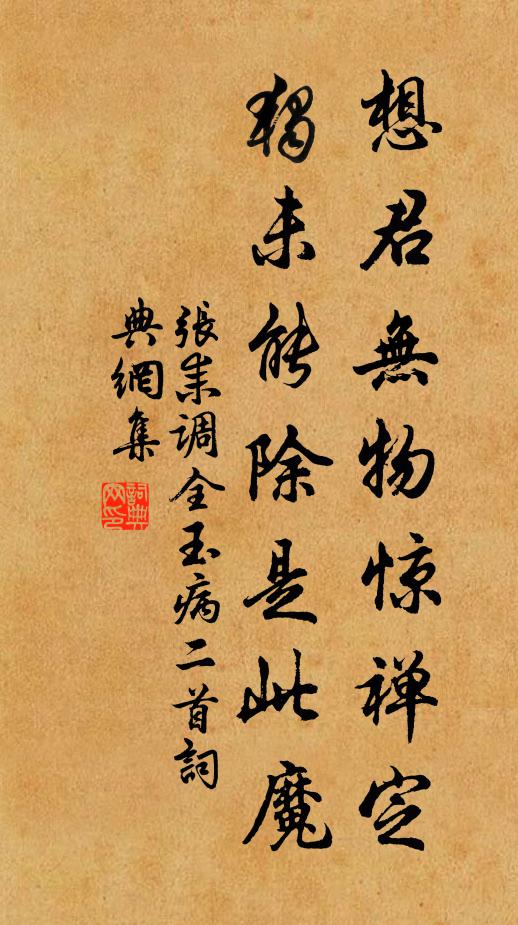 想君無物惊禅定
獨未能除是此魔
張耒调全玉病二首詞
典網集
詞典
网印